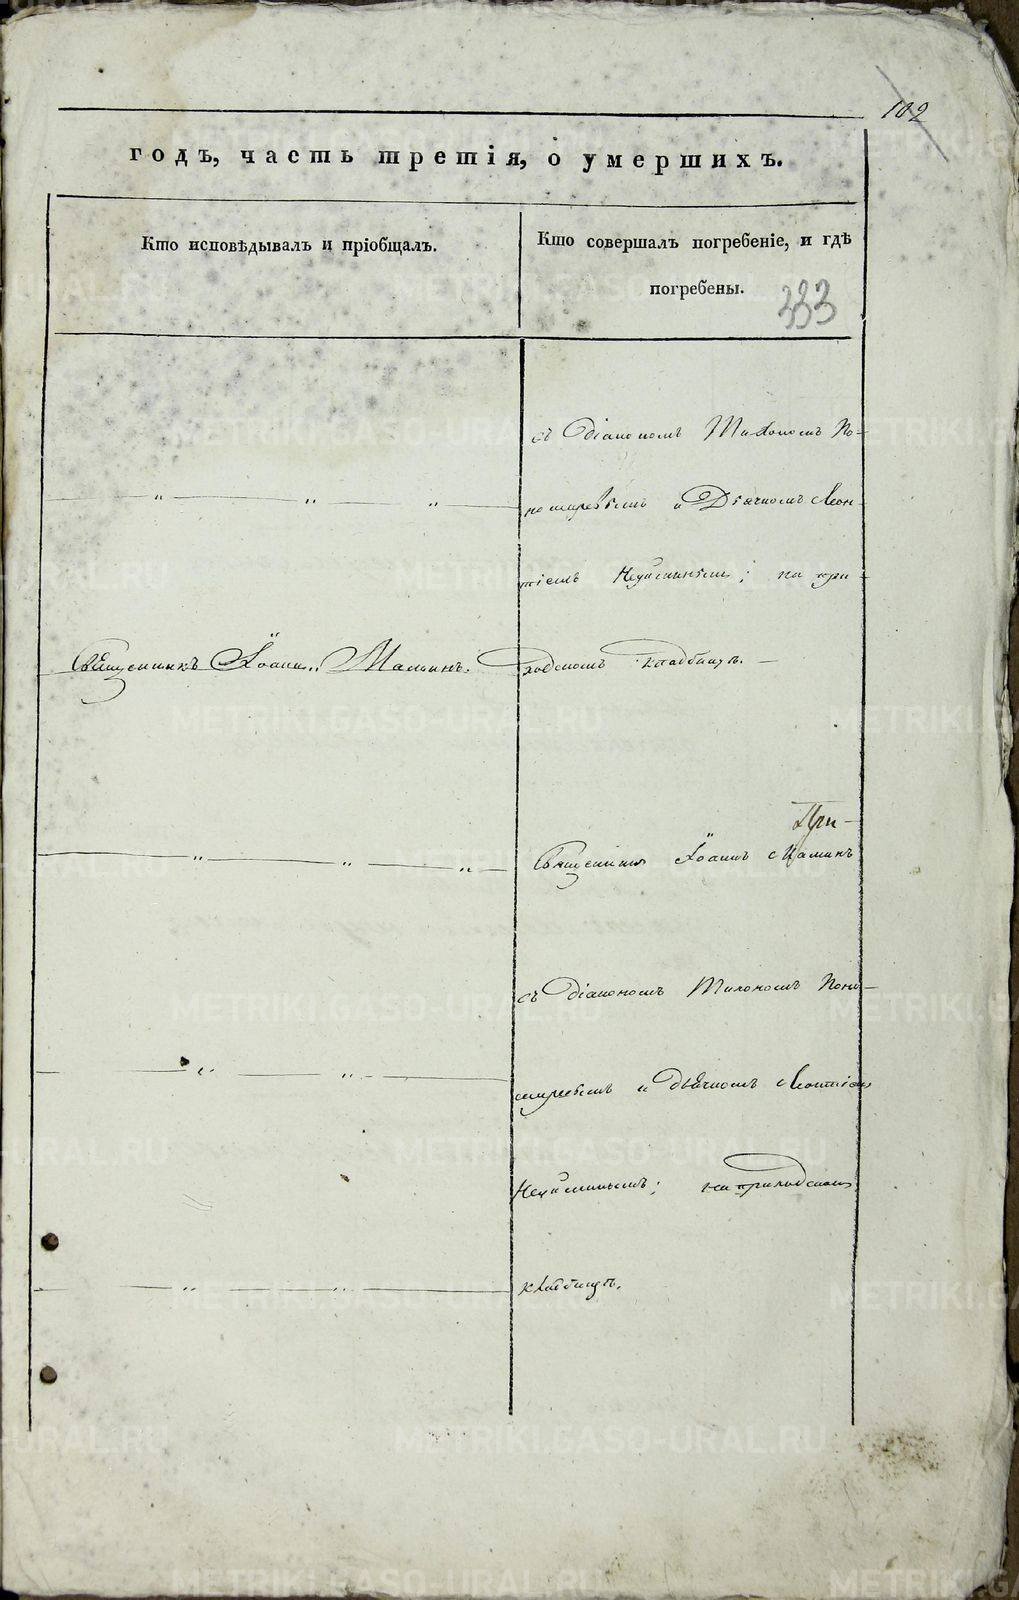 102
годъ, часть третія, о умершихъ.
Кто исповѣдывалъ и пріобщалъ.
Кто совершалъ погребеніе, и гдѣ
погребены.
333
съ Діакономъ Тихономъ По-
и Дьячкомъ Леон-
тіемъ на при-
Священникъ Іоаннъ Маминъ.
ходскомъ кладбищѣ.
При-
Священникъ Іоаннъ Маминъ
съ Діакономъ Тихономъ Поно-
и Дьячкомъ Леонтіемъ
на приходскомъ
кладбищѣ.
METRIKI.GASO-URAL.RU